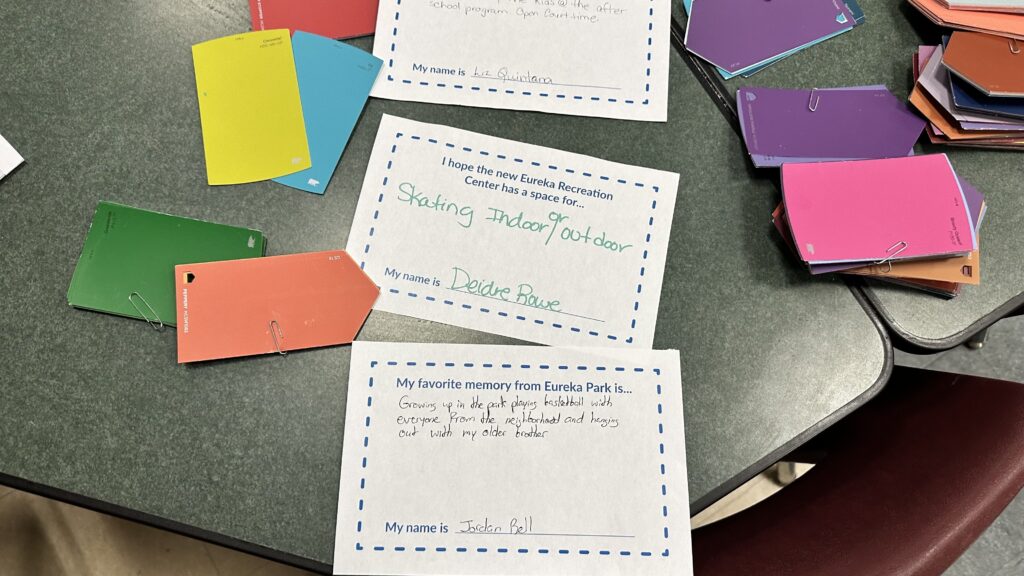 the Kids @ the after
school program. Open Court time.
My name is Liz Quintana
I hope the new Eureka Recreation
Center has a space for...
Skating Indoor or/outdoor
My name is Deidre Rowe
My favorite memory from Eureka Park is...
Growing up in the park playing basketball with
everyone from the neighborhood and hanging
out with my older brother
My name is Jordan Bell